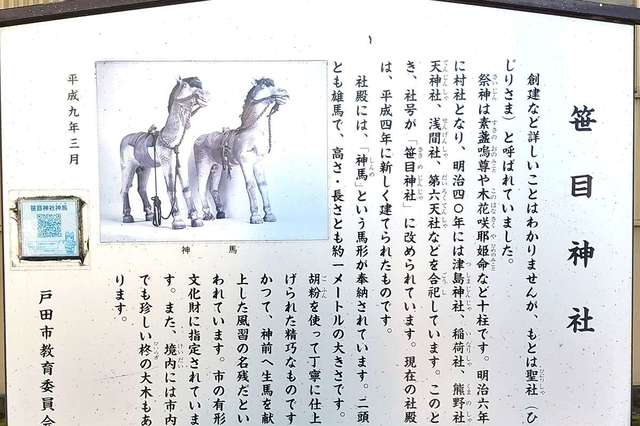 笹目神社
創建など詳しいことはわかりませんが、もとは聖社（ひ
じりさま）と呼ばれていました。
祭神は素盞嗚尊や木花咲耶姫命など十柱です。明治六年
に村社となり、明治四〇年には津島神社、稲荷社、熊野社
天神社、浅間社、第六天社などを合祀しています。このと
き、社号が「笹目神社」に改められています。現在の社殿
は、平成四年に新しく建てられたものです。
社殿には、「神馬」という馬形が奉納されています。二頭
とも雄馬で、高さ・長さとも約
メートルの大きさです。
胡粉を使って丁寧に仕上
げられた精巧なものです
かつて、神前へ生馬を献
上した風習の名残だとい
われています。市の有形
文化財に指定されていま
す。また、境内には市内
でも珍しい柊の大木もあ
ります。
神馬
笹目神社神馬
平成九年三月
戸田市教育委員会